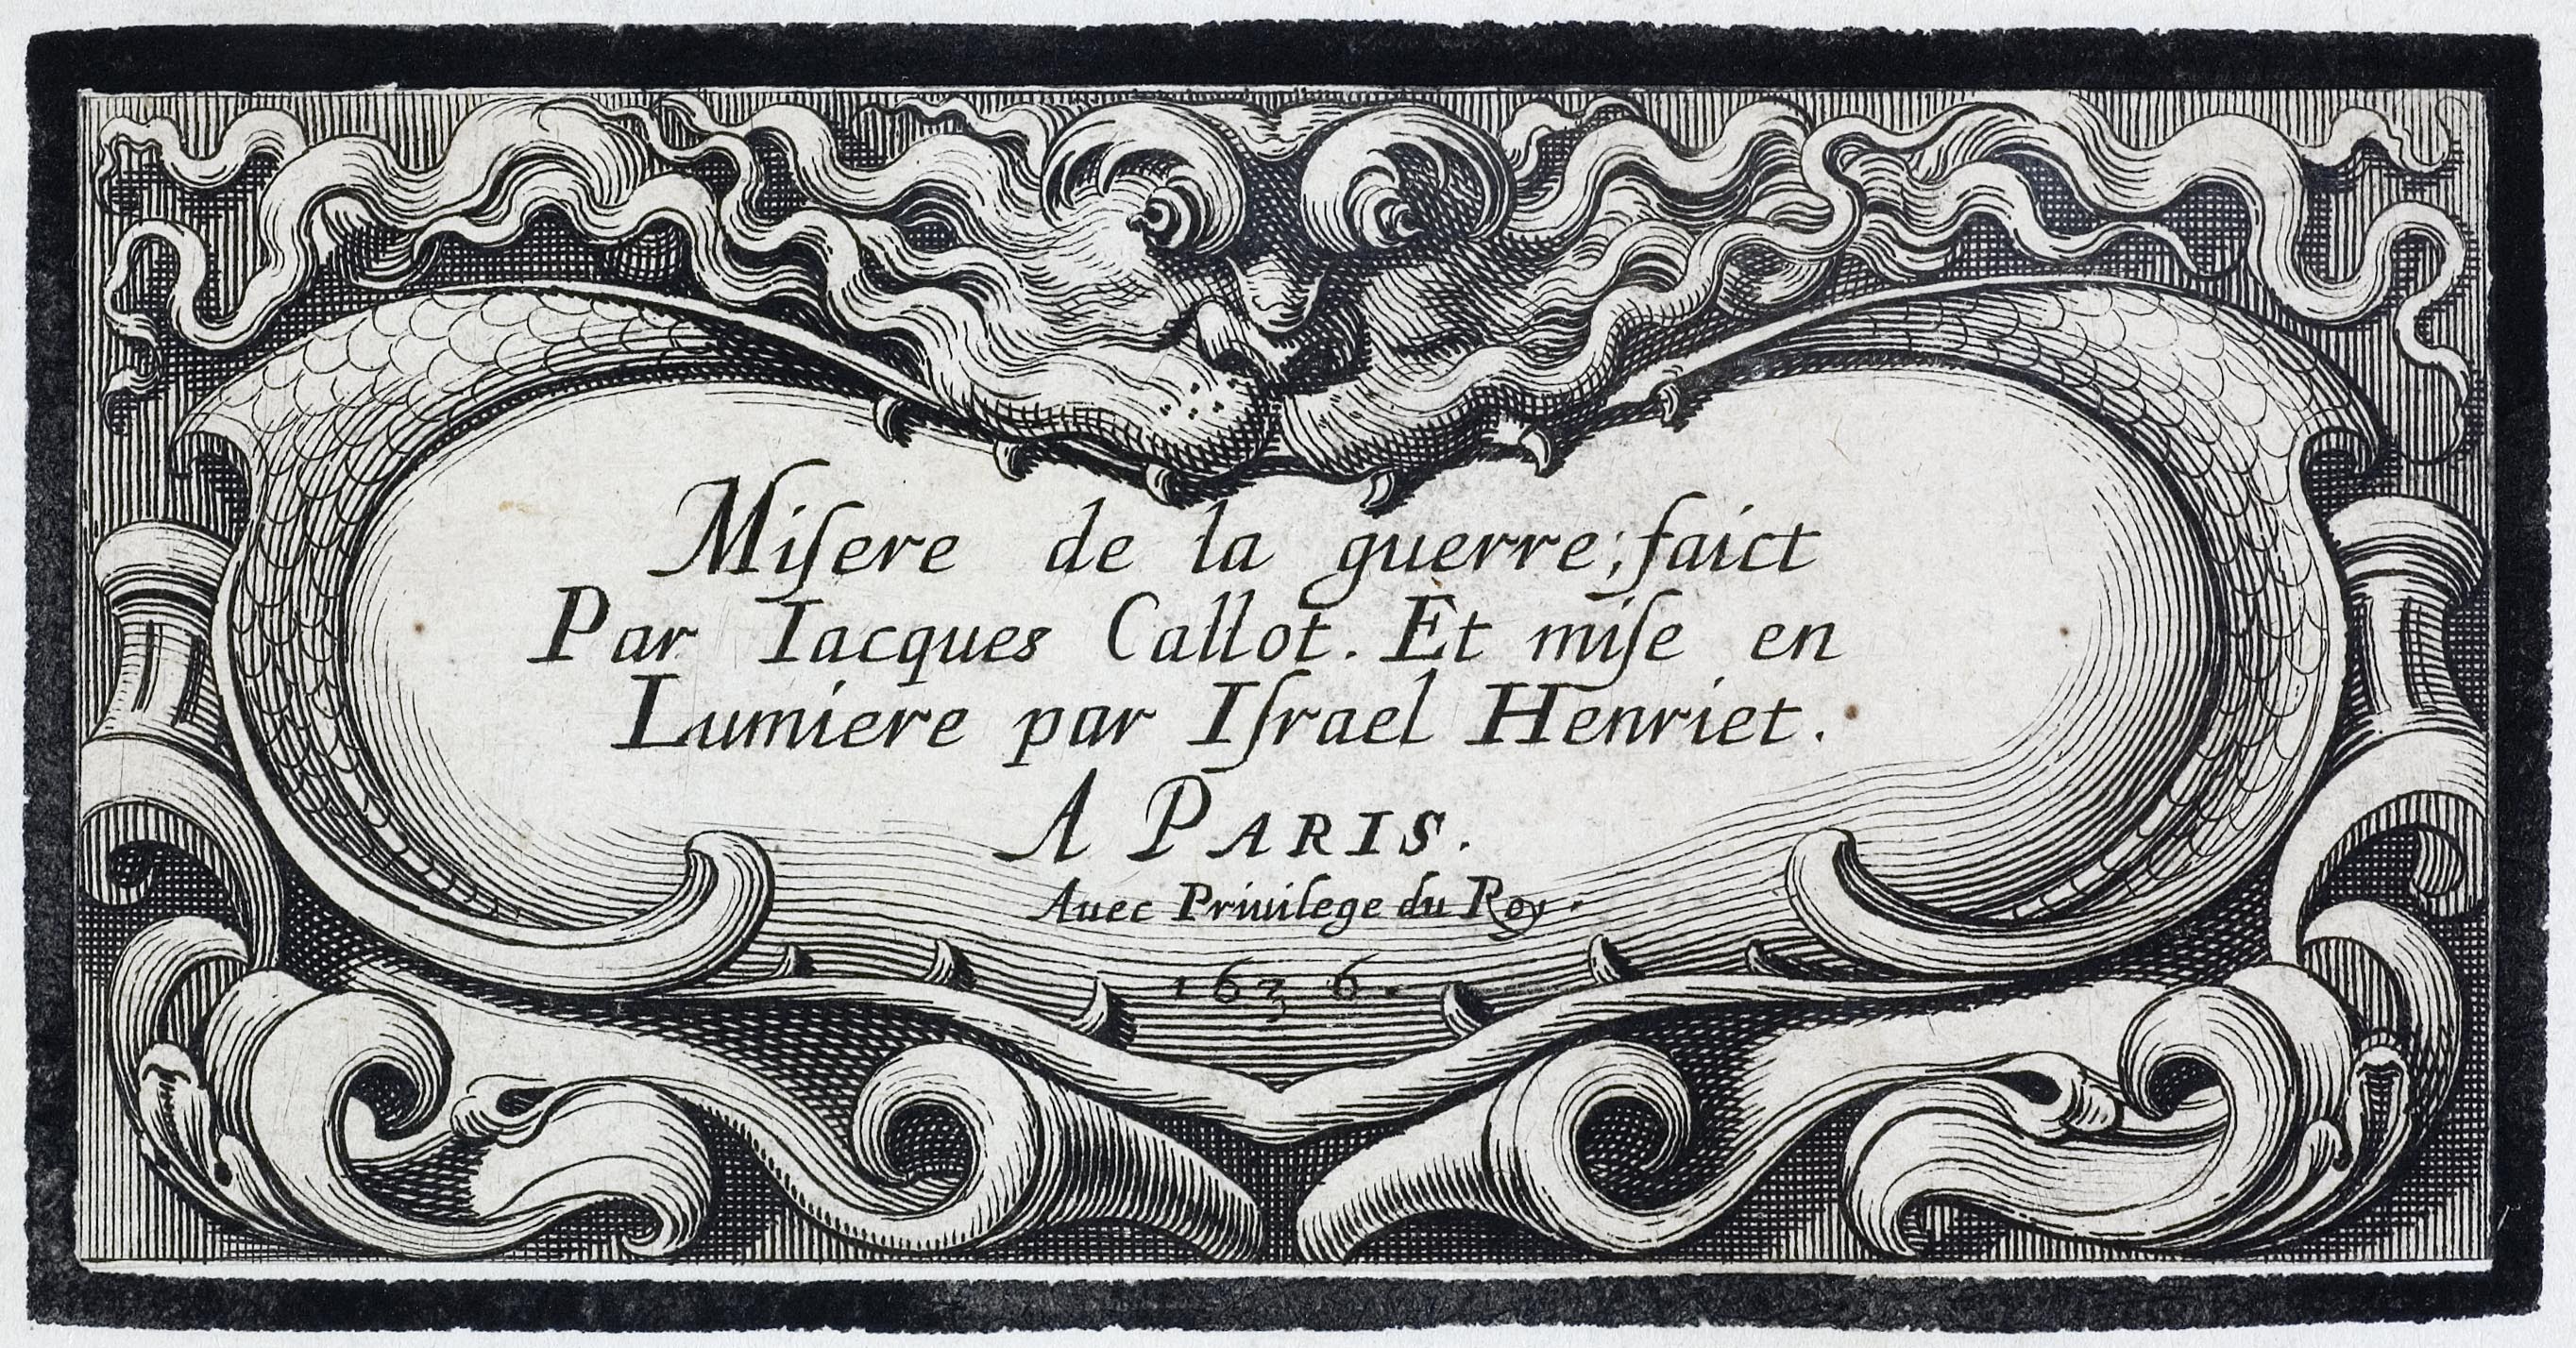 Miſere de la guerre; faict
Par Iacques Callot. Et miſe en
Lumiere par Iſrael Henriet.
A PARIS.
Auec Priuilege du Roy.
1636.